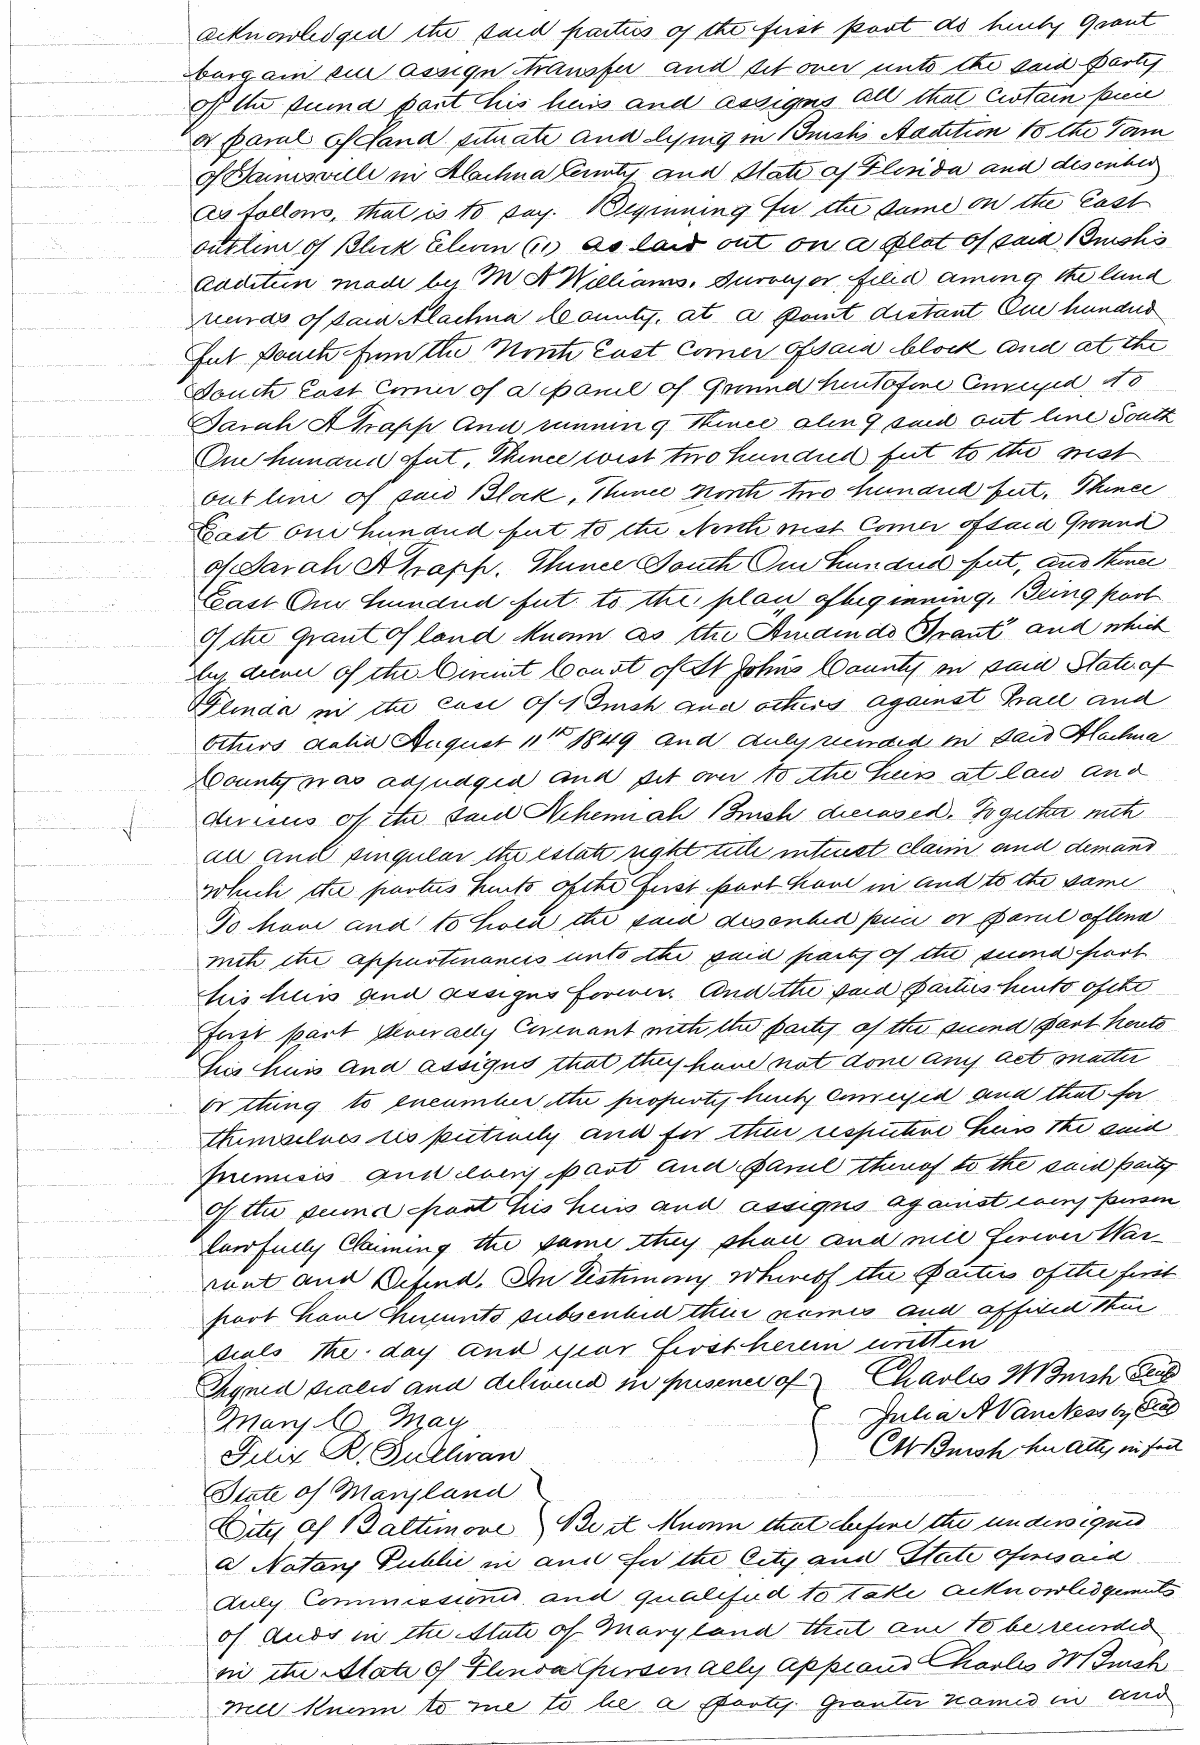 acknowledged the said parties of the first part do hereby Grant
bargain sell assign transfer and set over unto the said party
of the second part his heirs and assigns all that certain piece
or parcel of land situate and lying in Brush's Addition to the Town
of Gainesville in Alachua County and State of Florida and described
as follows, that is to say. Beginning for the same on the East
outline of Block Eleven (11) as laid out on a plat of said Brush's
addition made by M A Williams, Surveyor filed among the land
records of said Alachua County, at a point distant One hundred
feet South from the North East Corner of said block and at the
South East Corner of a parcel of Ground heretofore Conveyed to
Sarah A Trapp and running thence along said out line South
One hundred feet, Thence west two hundred feet to the west
out line of said Block, Thence North two hundred feet, Thence
East one hundred feet to the North west Corner of said Ground
of Sarah A Trapp. Thence South One hundred feet, and thence
East One hundred feet to the place of beginning, Being part
of the grant of land known as the "Arredondo Grant" and which
by decree of the Circuit Court of St John's County in said State of
Florida in the case of Brush and others against Hall and
others dated August 11th 1849 and duly recorded in said Alachua
County was adjudged and set over to the heirs at law and
devisees of the said Nehemiah Brush deceased. Together with
all and singular the estate right title interest claim and demand
which the parties hereto of the first part have in and to the same
To have and to hold the said described piece or parcel of land
with the appurtenances unto the said party of the second part
his heirs and assigns forever. And the said Parties hereto of the
first part severally Covenant with the party of the second part hereto
his heirs and assigns that they have not done any act matter
or thing to encumber the property hereby conveyed and that for
themselves respectively and for their respective heirs the said
premises and every part and parcel thereof to the said party
of the second part his heirs and assigns against every person
lawfully Claiming the same they shall and will forever War-
rant and Defend. In Testimony whereof the Parties of the first
part have hereunto subscribed their names and affixed their
seals the day and year first herein written
Signed sealed and delivered in presence of Charles W Brush Seal
Mary C. May Julia A Vanckess by Seal
Felix R. Sullivan C W Brush her atty in fact
State of Maryland
City of Baltimore Be it Known that before the undersigned
a Notary Public in and for the City and State aforesaid
duly Commissioned and qualified to take acknowledgements
of deeds in the State of Maryland that are to be recorded
in the State of Florida personally appeared Charles W Brush
well known to me to be a party Grantor named in and